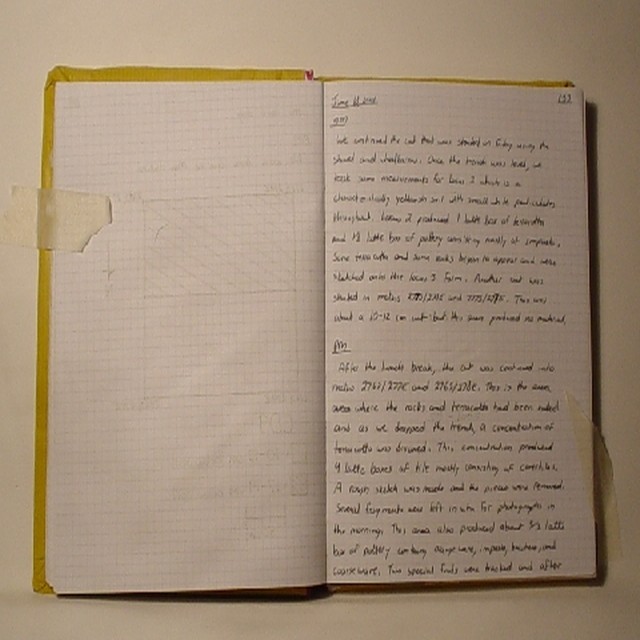 133
We continued the cut that was started on Friday using the
shovel and wheelbarrow. Once the trench was level, we
took some measurements for locus 3 which is a
characteristically yellowish soil with small white particulates
throughout. Locus 2 produced 1 latte box of terracotta
and 1/8 latte box of pottery consisting mostly of impasto.
Some terracotta and some rocks began to appear and were
sketched onto the locus 3 form. Another cut was
started in meters and This was
about a 10-12 cm cut but this area produced no material.
PM
After the lunch break, the cut was continued into
meters 276J/277E and 276J/278E. This is the same
area where the rocks and terracotta had been noted
and as we dropped the trench, a concentration of
terracotta was discovered. This concentration produced
4 latte boxes of tile mostly consisting of covertiles.
A rough sketch was made and the pieces were removed.
Several fragments were left in situ for photographs in
the morning. This area also produced about latte
box of pottery containing orangeware, impasto, bucchero, and
coarseware. Two special finds were tracked and after